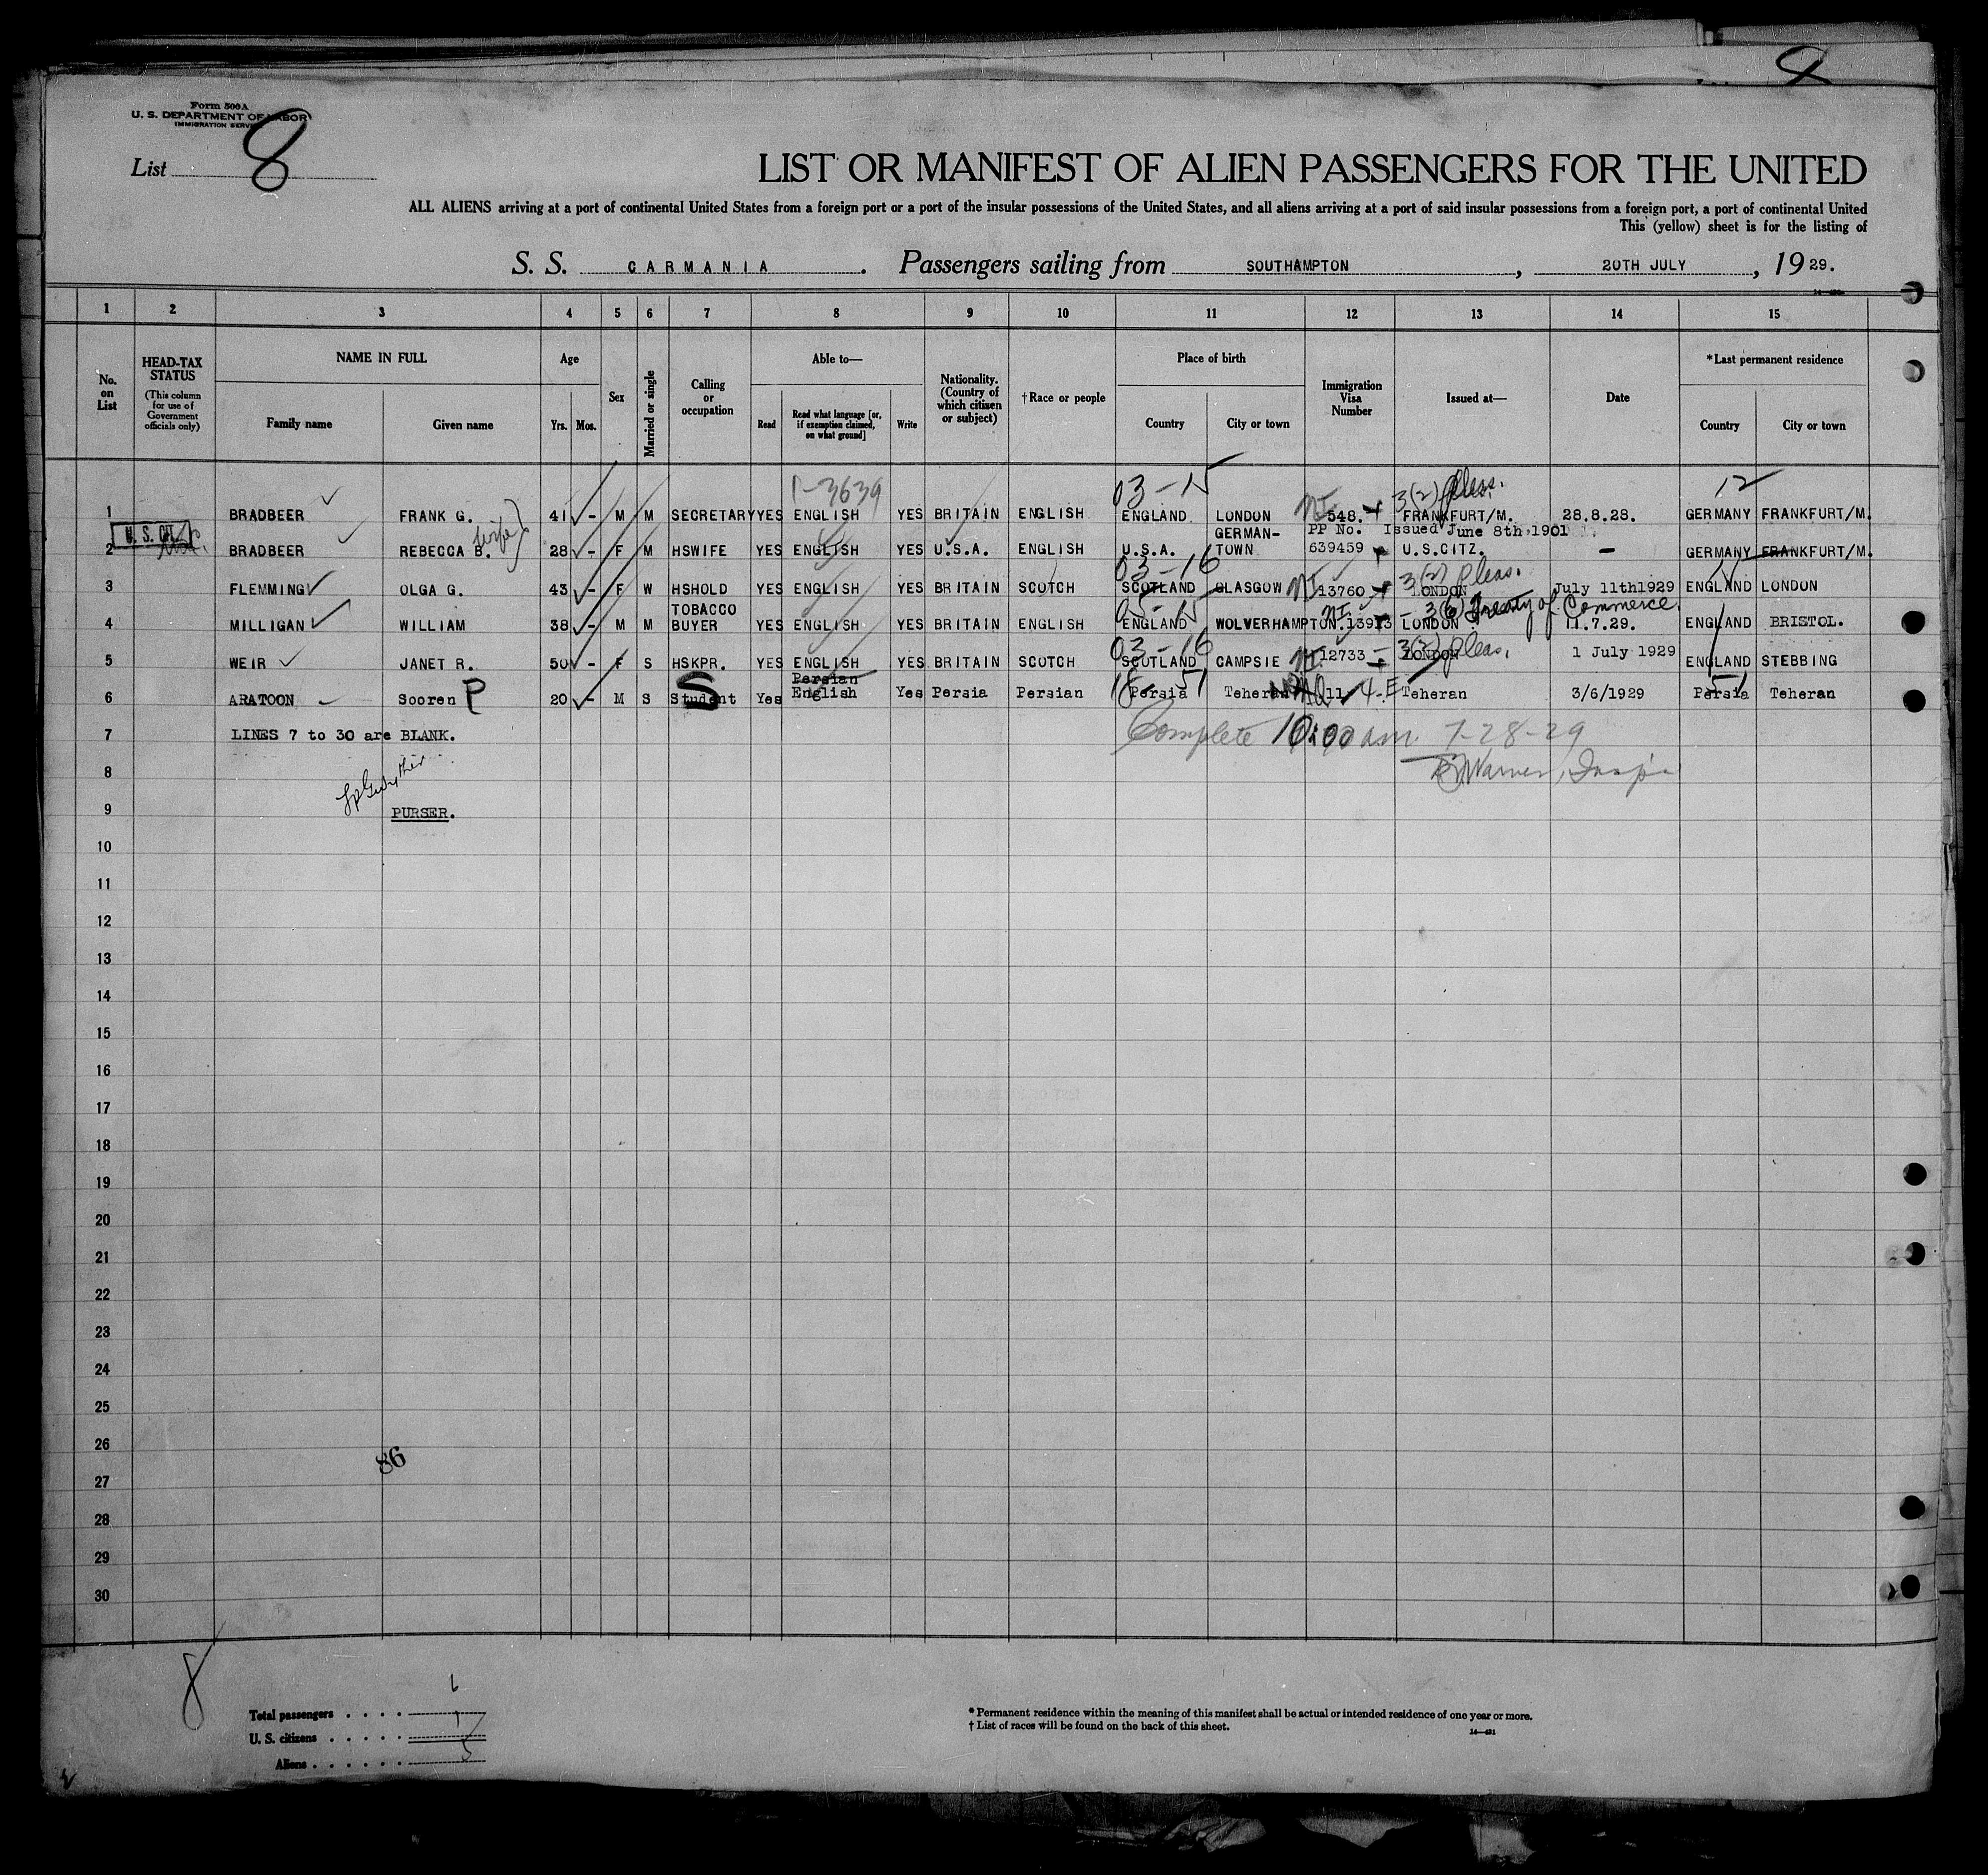 Form 500A
U. S. DEPARTMENT OF LABOR
IMMIGRATION SERVICE
List 8
LIST OR MANIFEST OF ALIEN PASSENGERS FOR THE UNITED
ALL ALIENS arriving at a port of continental United States from a foreign port or a port of the insular possessions of the United States, and all aliens arriving at a port of said insular possessions from a foreign port, a port of continental United
This (yellow) sheet is for the listing of
S. S. CARMANIA. Passengers sailing from SOUTHAMPTON, 20TH JULY, 1929.
1 2 3 4 5 6 7 8 9 10 11 12 13 14 15
No. on List
HEAD-TAX STATUS (This column for use of Government officials only)
NAME IN FULL
Family name Given name
Age
Yrs. Mos.
Sex
Married or single
Calling or occupation
Able to—
Read Read what language [or, if exemption claimed, on what ground] Write
Nationality. (Country of which citizen or subject)
†Race or people
Place of birth
Country City or town
Immigration Visa Number
Issued at—
Date
*Last permanent residence
Country City or town
03-15 3(2) Pleas. 12
1 BRADBEER FRANK G. 41 - M M SECRETARY YES ENGLISH YES BRITAIN ENGLISH ENGLAND LONDON 548. FRANKFURT/M. 28.8.28. GERMANY FRANKFURT/M.
U. S. CIT. wife GERMAN- PP No. Issued June 8th 1901
2 BRADBEER REBECCA B. 28 - F M HSWIFE YES ENGLISH YES U.S.A. ENGLISH U.S.A. TOWN 639459 U.S.CITZ. - GERMANY FRANKFURT/M.
03-16 3(2) Pleas.
3 FLEMMING OLGA G. 43 - F W HSHOLD YES ENGLISH YES BRITAIN SCOTCH SCOTLAND GLASGOW 13760 LONDON July 11th1929 ENGLAND LONDON
TOBACCO 3(6) Treaty of Commerce
4 MILLIGAN WILLIAM 38 - M M BUYER YES ENGLISH YES BRITAIN ENGLISH ENGLAND WOLVERHAMPTON. LONDON 11.7.29. ENGLAND BRISTOL.
03-16 3(2) Pleas.
5 WEIR JANET R. 50 - F S HSKPR. YES ENGLISH YES BRITAIN SCOTCH SCOTLAND CAMPSIE 12733 LONDON 1 July 1929 ENGLAND STEBBING
Persian
6 ARATOON Sooren P 20 - M S Student S Yes English Yes Persia Persian Persia Teheran 11 4-E Teheran 3/6/1929 Persia Teheran
7 LINES 7 to 30 are BLANK. Complete 10:00 am 7-28-29
8
9 PURSER.
10
11
12
13
14
15
16
17
18
19
20
21
22
23
24
25
26
86
27
28
29
30
8
Total passengers . . . . 6
U. S. citizens . . . . . 1
Aliens . . . . . . 5
* Permanent residence within the meaning of this manifest shall be actual or intended residence of one year or more.
† List of races will be found on the back of this sheet.